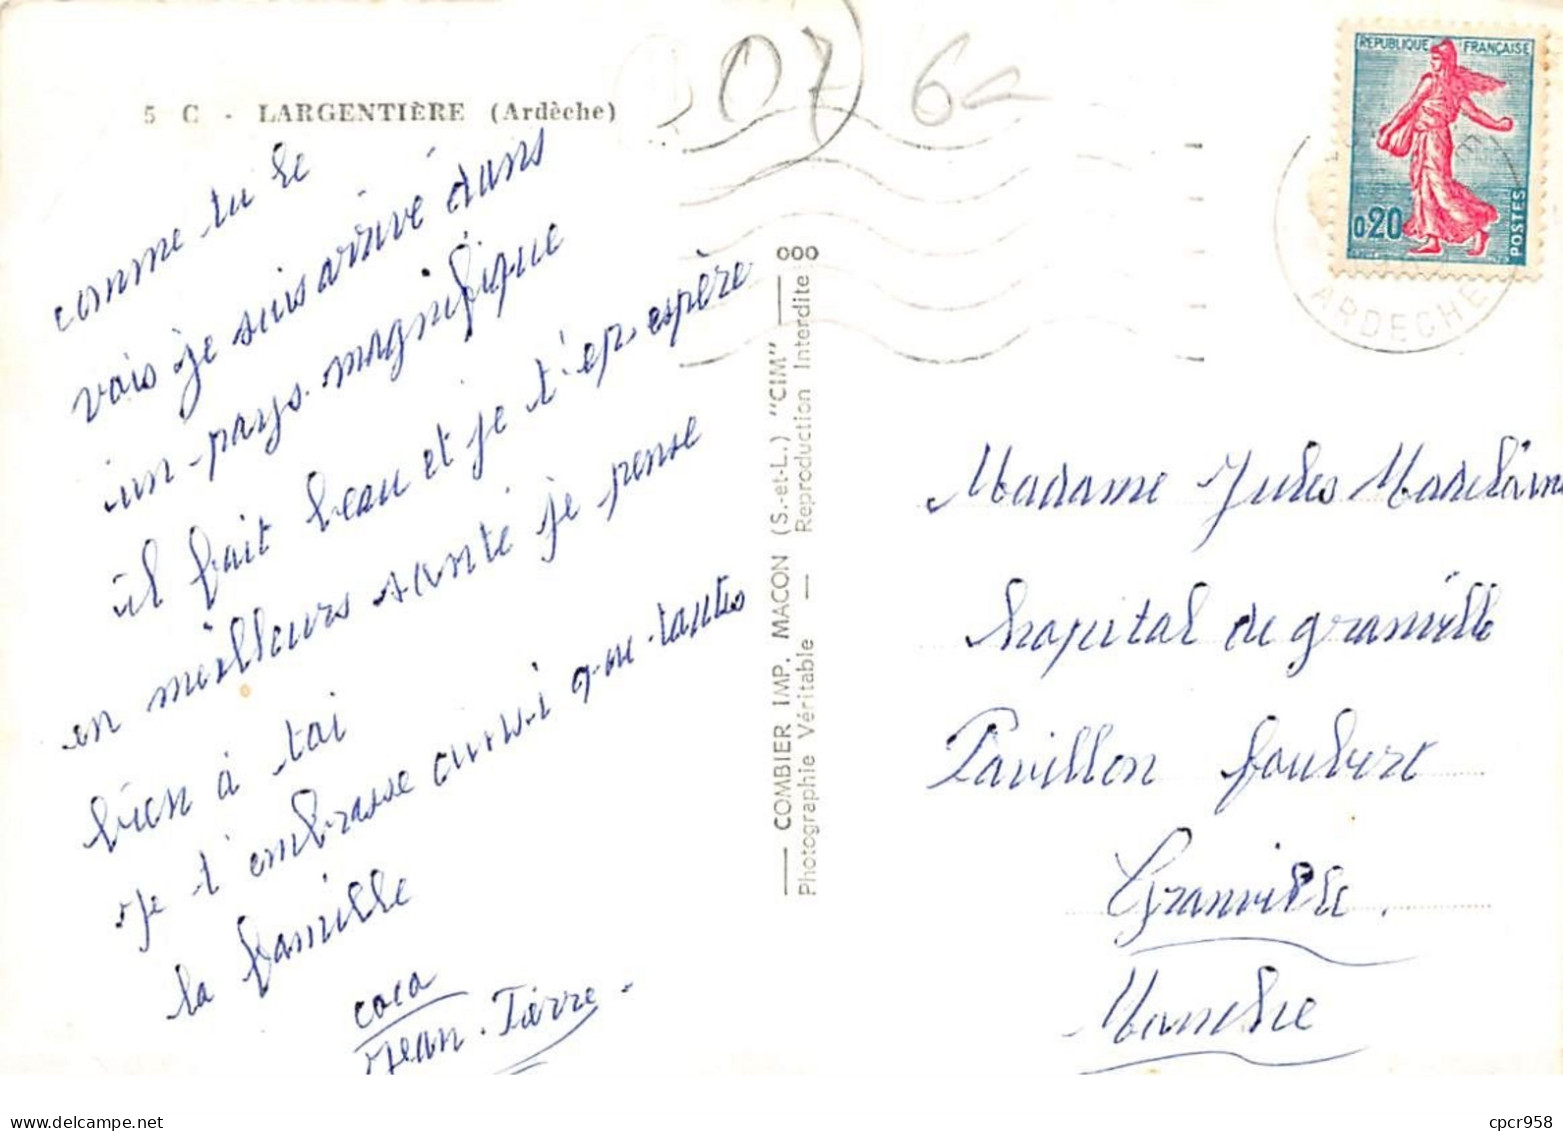 5 C - LARGENTIÈRE (Ardèche)
07
comme tu le
vois je suis arrivé dans
un pays magnifique
il fait beau et je t'ep espère
en meilleurs santé je pense
bien à toi
je t'embrasse aussi que tautes
la famille
coco
Jean-Pierre
COMBIER IMP. MACON (S.-et-L.) "CIM"
Photographie Véritable — Reproduction Interdite
RÉPUBLIQUE FRANÇAISE
0,20
POSTES
ARDECHE
Madame Jules Madelaine
hopital de granville
Pavillon foubert
Granville.
Manche
cpcr958